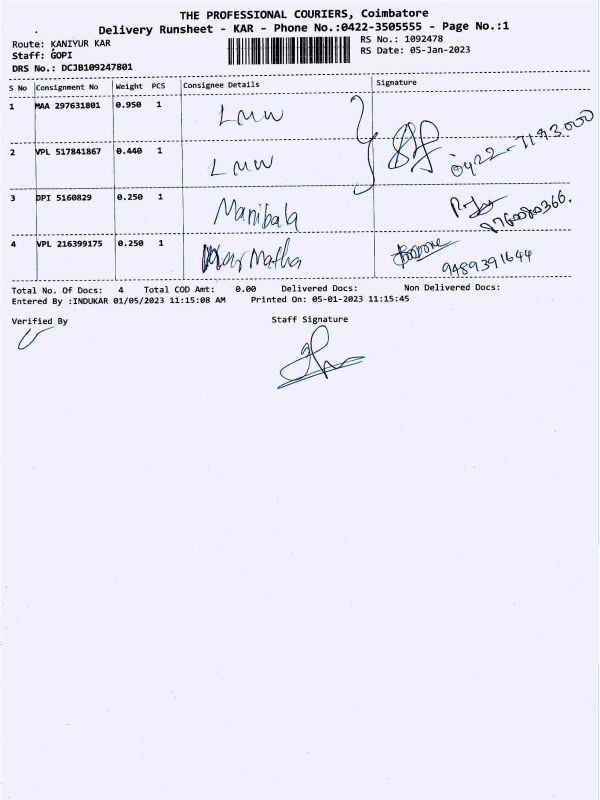 THE PROFESSIONAL COURIERS, Coimbatore
Delivery Runsheet - KAR - Phone No.:0422-3505555 - Page No.:1
Route: KANIYUR KAR
RS No.: 1092478
Staff: GOPI
RS Date: 05-Jan-2023
DRS No.: DCJB109247801
S No Consignment No Weight PCS Consignee Details Signature
1 MAA 297631801 0.950 1 LMW
2 VPL 517841867 0.440 1 LMW 0422-7193000
3 DPI 5160829 0.250 1 Manibala
4 VPL 216399175 0.250 1 Matha 9489391644
Total No. Of Docs: 4 Total COD Amt: 0.00 Delivered Docs: Non Delivered Docs:
Entered By :INDUKAR 01/05/2023 11:15:08 AM Printed On: 05-01-2023 11:15:45
Verified By Staff Signature